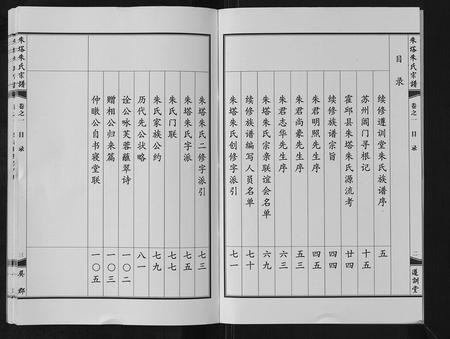 朱塔朱氏宗譜
卷之一 目录
遵訓堂
目录
续修遵训堂朱氏族谱序 五
苏州阊门寻根记 十五
霍邱县朱塔朱氏源流考 廿四
续修族谱宗旨 四四
朱君明照先生序 四五
朱君尚豪先生序 五三
朱君志华先生序 六三
朱塔朱氏宗亲联谊会名单 六九
续修族谱编写人员名单 七十
朱塔朱氏创修字派引 七一
朱塔朱氏二修字派引 七三
朱塔朱氏字派 七五
朱氏门联 七七
朱氏家族公约 七九
历代先公状略 八一
诠公咏芙蓉蘸翠诗 一〇二
赠相公归来篇 一〇三
仲暾公自书寝堂联 一〇五
朱塔朱氏宗譜
卷之一 目录
吴郡